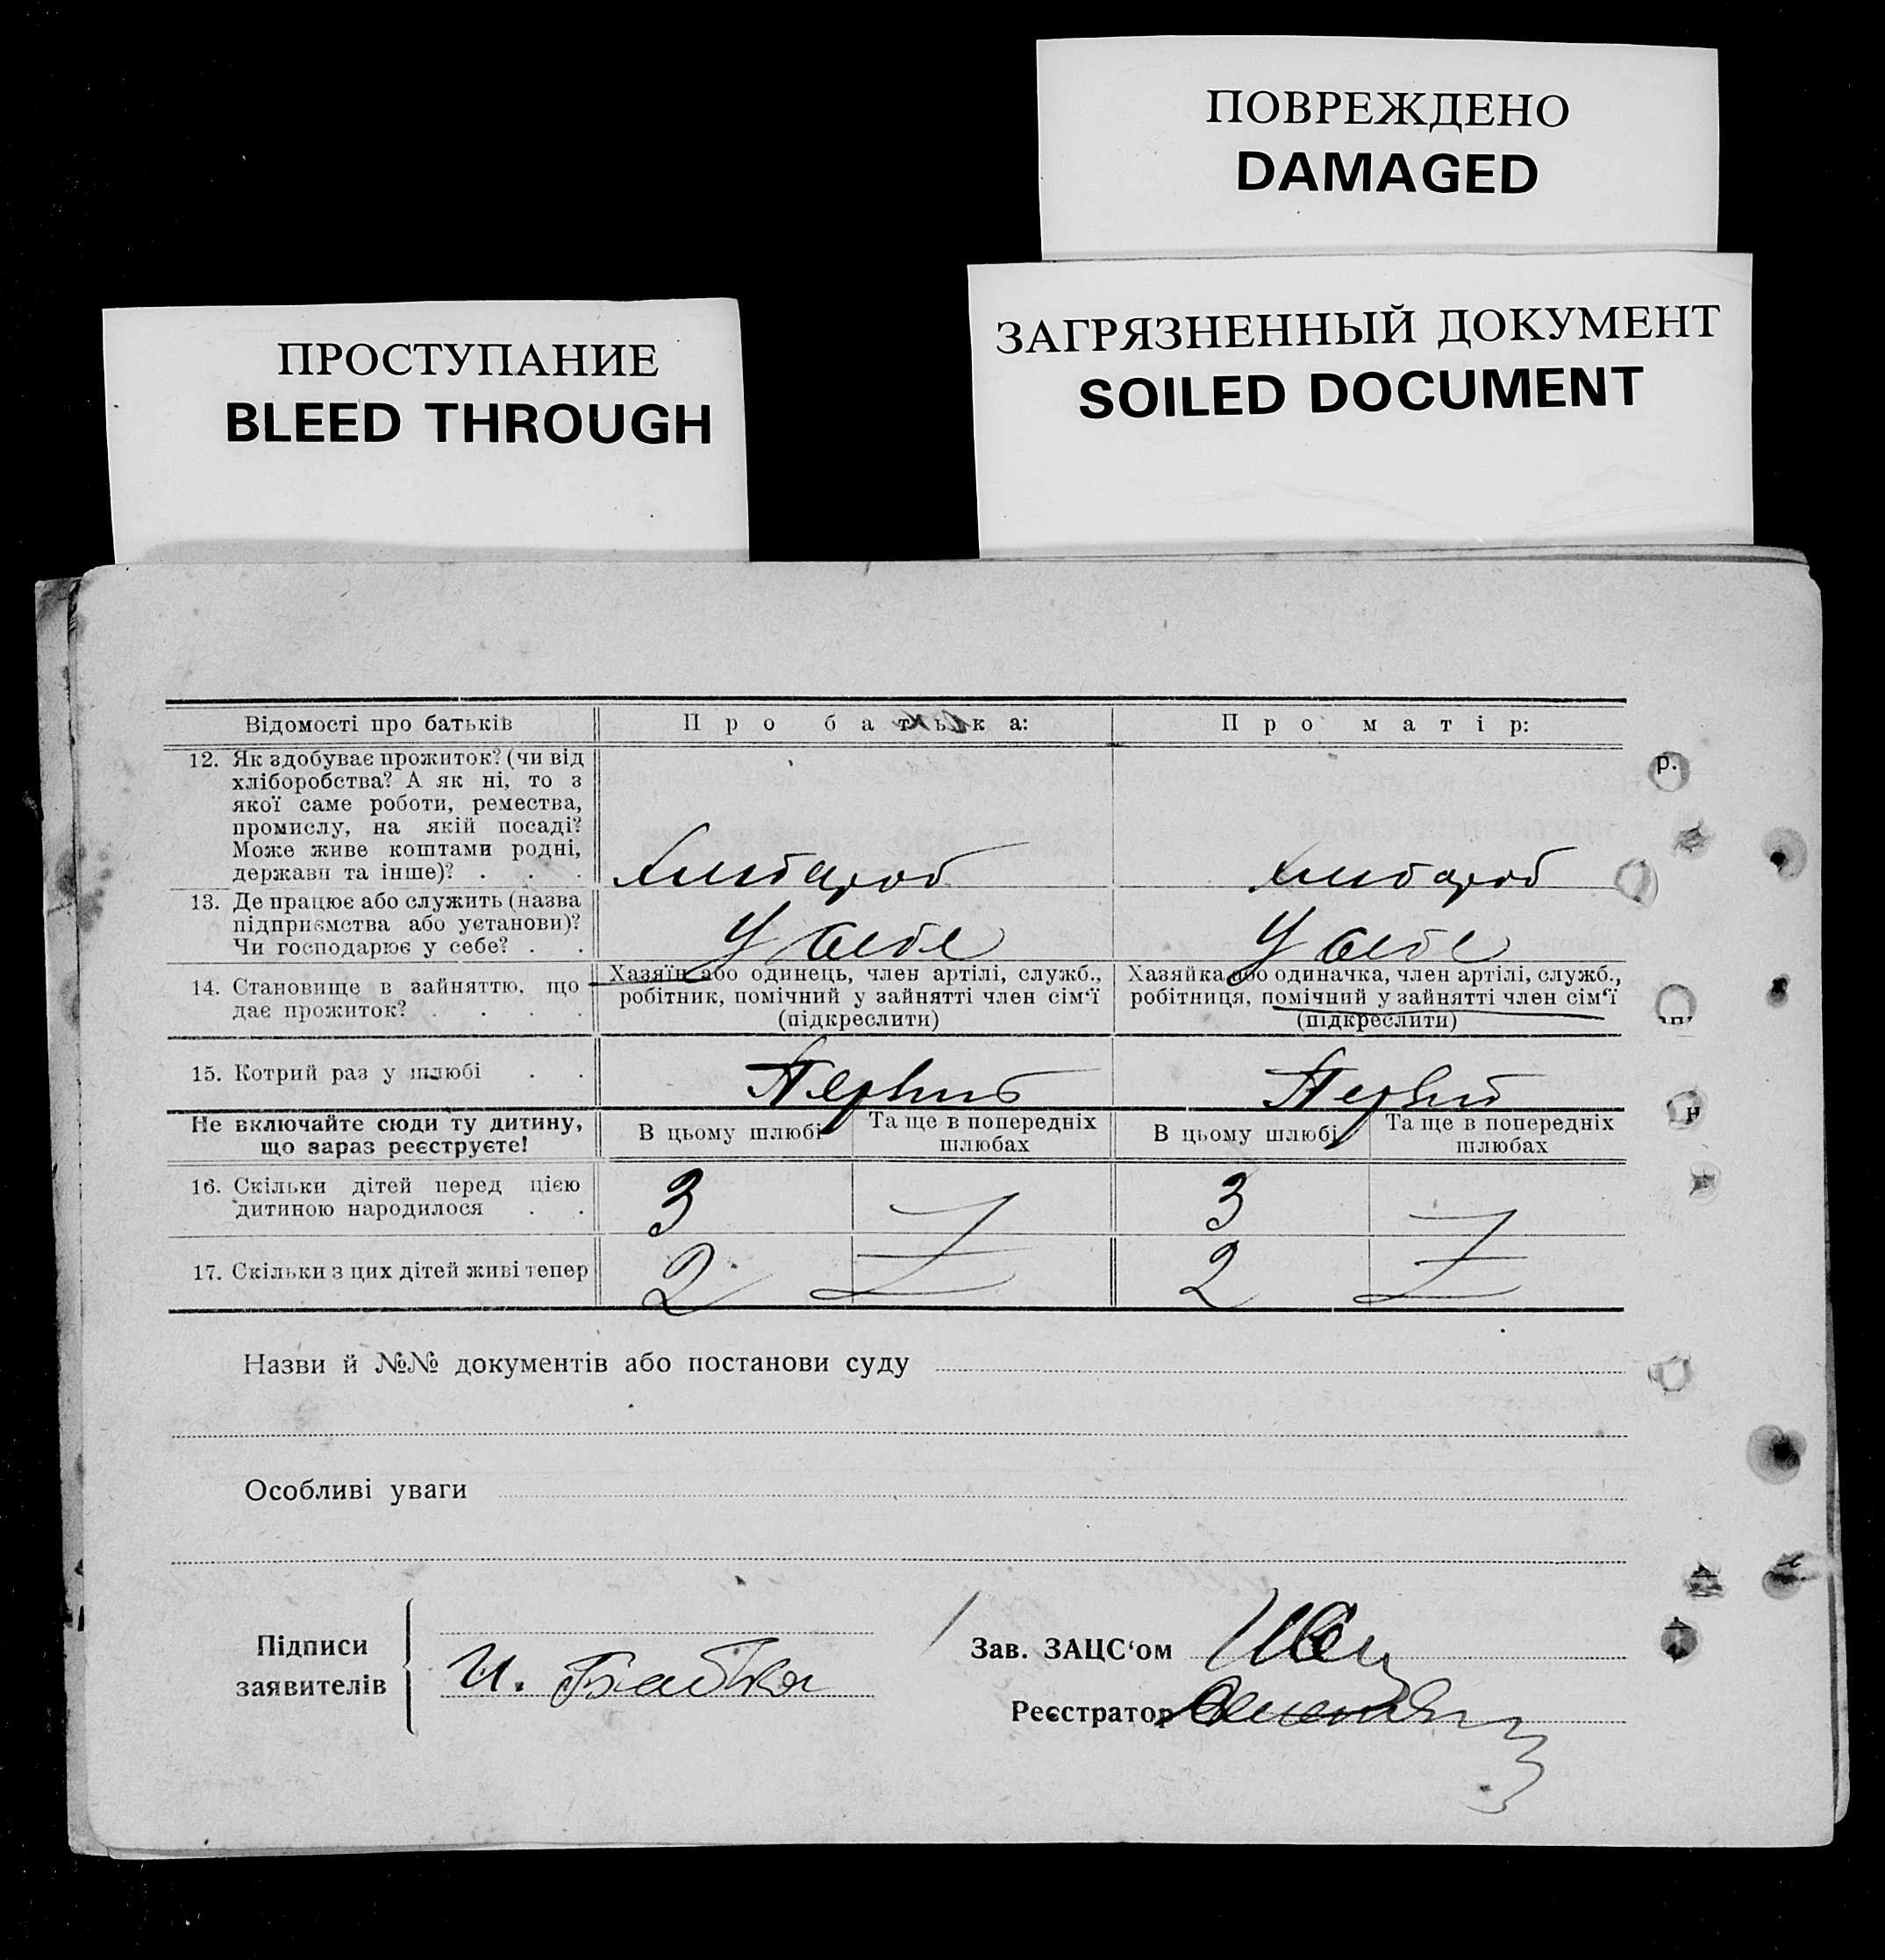 ПОВРЕЖДЕНО
DAMAGED
ЗАГРЯЗНЕННЫЙ ДОКУМЕНТ
SOILED DOCUMENT
ПРОСТУПАНИЕ
BLEED THROUGH
Відомості про батьків
Про батька:
Про матір:
12. Як здобуває прожиток? (чи від
хліборобства? А як ні, то з
якої саме роботи, ремества,
промислу, на якій посаді?
Може живе коштами родні,
держави та інше)? . . .
Хлибороб
Хлибороб
13. Де працює або служить (назва
підприємства або установи)?
Чи господарює у себе? . .
У себе
У себе
14. Становище в зайняттю, що
дає прожиток? . . . .
Хазяїн або одинець, член артілі, служб.,
робітник, помічний у зайнятті член сім‘ї
(підкреслити)
Хазяйка або одиначка, член артілі, служб.,
робітниця, помічний у зайнятті член сім‘ї
(підкреслити)
15. Котрий раз у шлюбі . .
Первий
Первий
Не включайте сюди ту дитину,
що зараз реєструєте!
В цьому шлюбі
Та ще в попередніх
шлюбах
В цьому шлюбі
Та ще в попередніх
шлюбах
16. Скільки дітей перед цією
дитиною народилося . .
3
3
17. Скільки з цих дітей живі тепер
2
2
Назви й №№ документів або постанови суду
Особливі уваги
Підписи
заявителів
И. Бабка
Зав. ЗАЦС‘ом
Реєстратор
р.
н